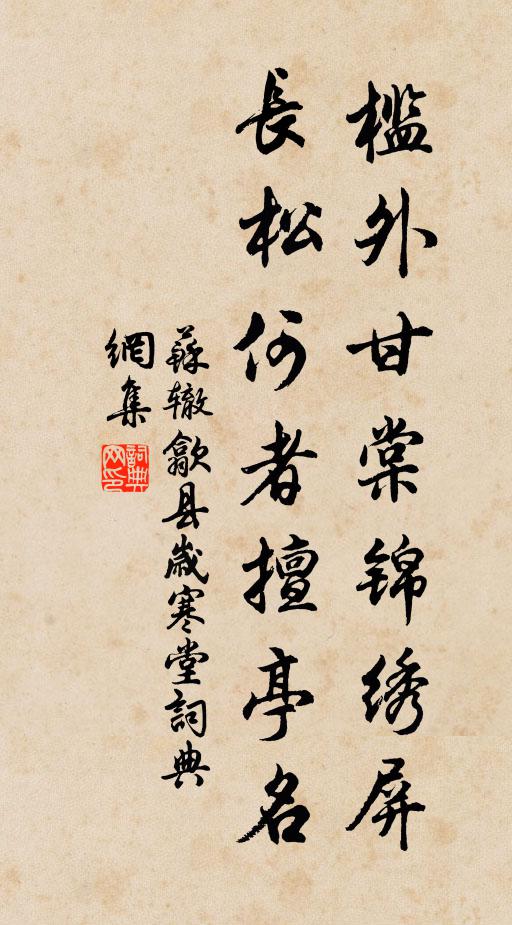 槛外甘棠锦绣屏
長松何者擅亭名
蘇辙歙县歲寒堂詞典
網集
詞典
网印